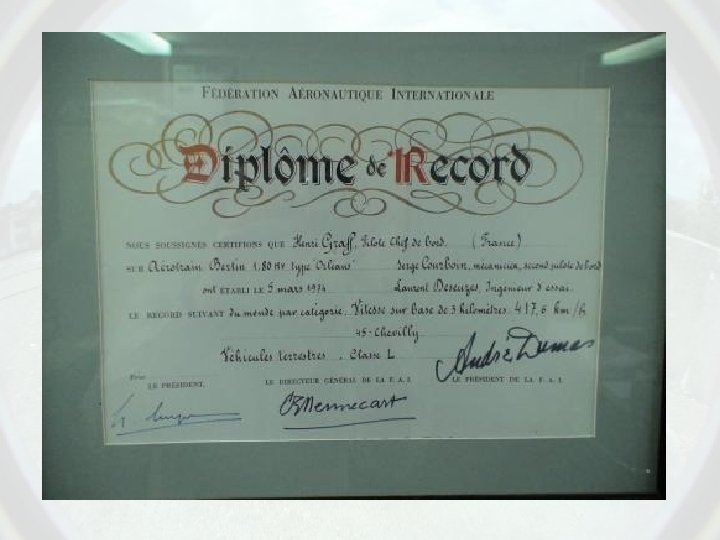 FÉDÉRATION AÉRONAUTIQUE INTERNATIONALE
Diplôme de Record
NOUS SOUSSIGNÉS CERTIFIONS QUE Henri Graff, Pilote Chef de bord. (France)
SUR Aérotrain Bertin 1.80 HV type "Orléans" Serge Courboin, mécanicien, second pilote de bord
ont ÉTABLI LE 5 mars 1974 Laurent Deseuzes, Ingénieur d'essai.
LE RECORD SUIVANT du monde par catégorie, Vitesse sur Base de 3 kilomètres. 417,6 km/h
45-Chevilly
Véhicules terrestres. Classe L
Pour
LE PRÉSIDENT, LE DIRECTEUR GÉNÉRAL DE LA F. A. I. LE PRÉSIDENT DE LA F. A. I.
André Dumas